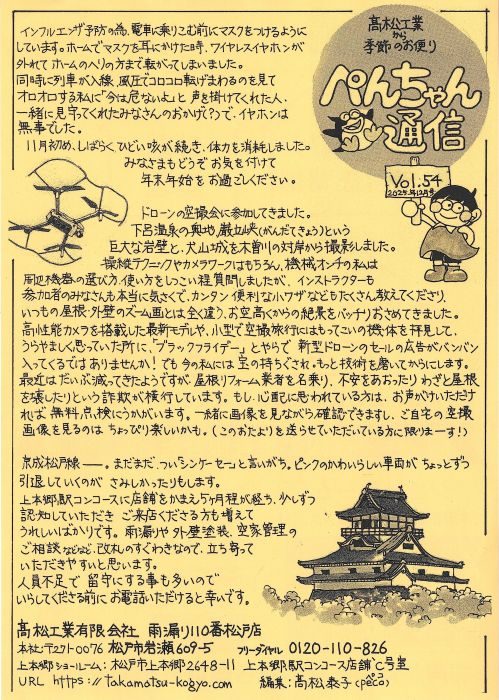 高松工業から
季節のお便り
ぺんちゃん
通信
Vol.54
2025年12月号
インフルエンザ予防の為、電車に乗りこむ前にマスクをつけるように
しています。ホームでマスクを耳にかけた時、ワイヤレスイヤホンが
外れてホームのヘリの方まで転がってしまいました。
同時に列車が入線、風圧でコロコロ転げまわるのを見て
オロオロする私に「今は危ないよ」と声を掛けてくれた人、
一緒に見守ってくれたみなさんのおかげ(?)で、イヤホンは
無事でした。
11月初め、しばらくひどい咳が続き、体力を消耗しました。
みなさまもどうぞお気を付けて
年末年始をお過ごしください。
ドローンの空撮会に参加してきました。
下呂温泉の奥地、巌立峡(がんだてきょう)という
巨大な岩壁と、犬山城を木曽川の対岸から撮影しました。
操縦テクニックやカメラワークはもちろん、機械オンチの私は
周辺機器の選び方、使い方をしつこい程質問しましたが、インストラクターも
参加者のみなさんも本当に気さくで、カンタン便利な小ワザなどもたくさん教えてくださり、
いつもの屋根・外壁のズーム画とは全く違う、お空高くからの絶景をバッチリおさめてきました。
高性能カメラを搭載した最新モデルや、小型で空撮旅行にはもってこいの機体を拝見して、
うらやましく思っていた所に、「ブラックフライデー」とやらで新型ドローンのセールの広告がバンバン
入ってくるではありませんか！でも今の私には宝の持ちぐされ。もっと技術を磨いてからにします。
最近はだいぶ減ってきたようですが、屋根リフォーム業者を名乗り、不安をあおったりわざと屋根
を壊したりという詐欺が横行しています。もし心配に思われている方は、お声がけいただけ
れば無料点検にうかがいます。一緒に画像を見ながら確認できますし、ご自宅の空撮
画像を見るのはちょっぴり楽しいかも。(このおたよりを送らせていただいている方に限りまーす！)
京成松戸線――。まだまだ、つい「シンケーセー」と言いがち。ピンクのかわいらしい車両がちょっとずつ
引退していくのがさみしかったりもします。
上本郷駅コンコースに店舗をかまえ5ヶ月程が経ち、少しずつ
認知していただきご来店くださる方も増えて
うれしいばかりです。雨漏りや外壁塗装、空家管理の
ご相談などなど、改札のすぐわきなので、立ち寄って
いただきやすいと思います。
人員不足で留守にする事も多いので
いらしてくださる前にお電話いただけると幸いです。
高松工業有限会社 雨漏り110番松戸店
本社:〒271-0076 松戸市岩瀬609-5 フリーダイヤル 0120-110-826
上本郷ショールーム：松戸市上本郷2648-11 上本郷駅コンコース店舗C号室
URL https://takamatsu-kogyo.com 編集：高松泰子(peco)
ペコ